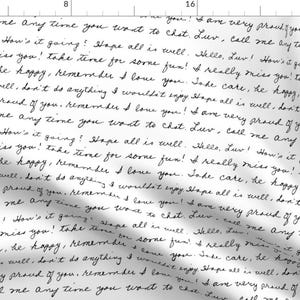 8 16
you! I am very proud of you
me any time you want to chat. Luv, call me any
How's it going? Hope all is well. Hello, Luv! How's
miss you! take time for some fun! I really miss you!
be happy, remember I love you. Take care, be happy
well, don't do anything I wouldn't enjoy Hope all is well, don't
proud of you, remember I love you! I am very proud of you
me any time you want to chat. Luv, call me any
How's it going? Hope all is well. Hello, Luv! How's
miss you! take time for some fun! I really miss you!
be happy, remember I love you. Take care, be
well, don't do anything I wouldn't enjoy Hope all is well, don't
proud of you, remember I love you! I am very proud of
me any time you want to chat. Luv, call me any
How's it going? Hope all is well. Hello, Luv!
miss you! take time for some fun! I really miss
be happy, remember I love you. Take care, be
well, don't do anything I wouldn't enjoy Hope all is well, don't
proud of you, remember I love you! I am very proud of
me any time you want to chat. Luv, call me